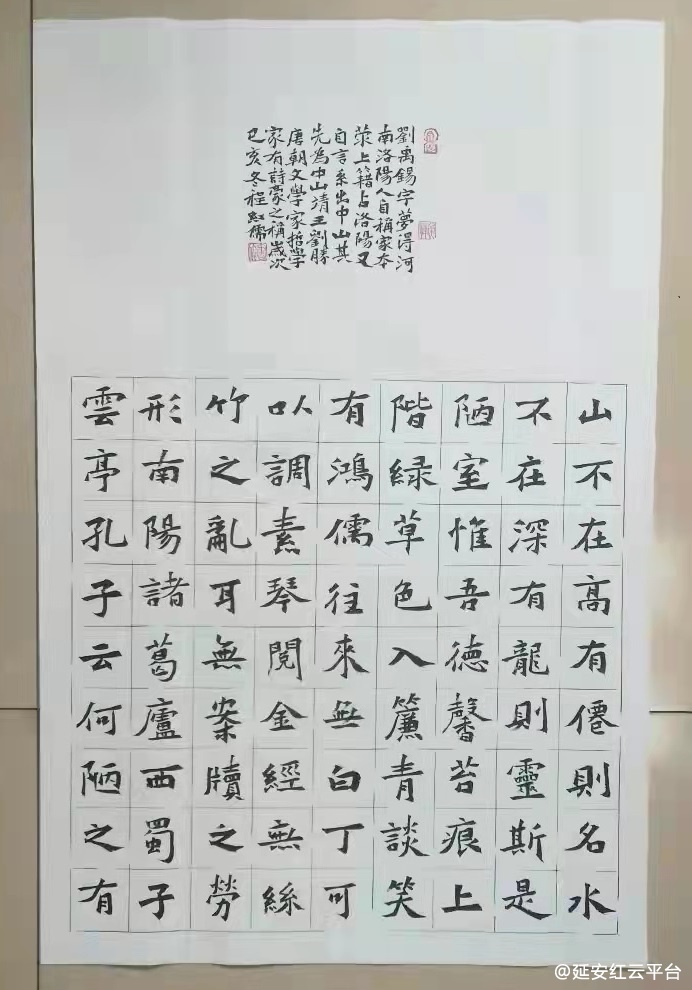 劉禹錫字夢得河
南洛陽人自稱家本
滎上籍占洛陽又
自言系出中山其
先為中山靖王劉勝
唐朝文學家哲學
家有詩豪之稱歲次
己亥冬程紅儒
山不在髙有僊則名水
不在深有龍則靈斯是
陋室惟吾德馨苔痕上
階緑草色入簾青談笑
有鴻儒往來無白丁可
以調素琴閱金經無絲
竹之亂耳無案牘之勞
形南陽諸葛廬西蜀子
雲亭孔子云何陋之有
@延安红云平台